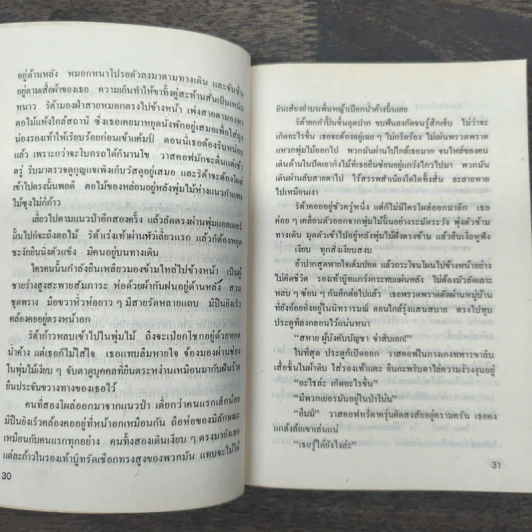 อยู่ด้านหลัง หมอกหนาโปรยตัวลงมาตามทางเดิน และซับซึม
อยู่ตามเสื้อผ้าของเธอ ความเย็นทำให้ขาทั้งคู่สะท้านสั่นเป็นเหน็บ
หนาว ริต้ามองฝ่าสายหมอกตรงไปข้างหน้า เพ่งสายตามองหา
ตอไม้แห้งใกล้สถานี ซึ่งเธอเคยมาหยุดนั่งพักอยู่เสมอเพื่อใส่ถุง
น่องรองเท้าให้เรียบร้อยก่อนเข้าแค้มป์ ตอนนี้เธอต้องรีบหน่อย
แล้ว เพราะกว่าจะโบกรถได้ก็นานโข วาสคอฟมักจะตื่นแต่เช้า
ตรู่ รีบมาตรวจดูกุญแจเพิงเก็บวัสดุอยู่เสมอ และริต้าจะต้องไม่
เข้าไปตรงนั้นพอดี ตอไม้ของหล่อนอยู่หลังพุ่มไม้ห่างแนวกำแพง
ไม้ซุงไม่กี่ก้าว
เลี้ยวไปตามแนวป่าอีกสองครั้ง แล้วลัดตรงผ่านพุ่มแอลเดอร์
นั้นไปก็จะถึงตอไม้ ริต้าเร่งเท้าผ่านหัวเลี้ยวแรก แล้วก็ต้องหยุด
ชะงักยืนนิ่งตัวแข็ง มีคนอยู่บนทางเดิน
ใครคนนั้นกำลังยืนเหลียวมองข้ามไหล่ไปข้างหน้า เป็นผู้
ชายร่างสูงสะพายสัมภาระ ห่อด้วยผ้ากันฝนอยู่ด้านหลัง สวม
ชุดพราง มือขวาหิ้วห่อยาว ๆ มีสายรัดหลายแถบ มีปืนยิงเร็ว
คล้องคออยู่ตรงหน้าอก
ริต้าก้าวหลบเข้าไปในพุ่มไม้ ถึงจะเปียกโชกอยู่ด้วยหยด
น้ำค้าง แต่เธอก็ไม่ใส่ใจ เธอแทบลืมหายใจ จ้องมองผ่านช่อง
ในพุ่มไม้เงียบ ๆ จับตาดูบุคคลที่ยืนตระหง่านเหมือนมากับฝันร้าย
ยืนประจันขวางทางของเธอไว้
คนที่สองโผล่ออกมาจากแนวป่า เตี้ยกว่าคนแรกเล็กน้อย
มีปืนยิงเร็วคล้องคออยู่ที่หน้าอกเหมือนกัน ถือห่อของมีลักษณะ
เหมือนกับคนแรกทุกอย่าง คนทั้งสองเดินเงียบ ๆ ตรงมายังเธอ
แต่ละก้าวในรองเท้าบู๊ทรัดเชือกทรงสูงของพวกมัน แทบจะไม่ได้
30
ยินเสียงย่ำบนพื้นหญ้าเปียกน้ำค้างนั้นเลย
ริต้ายกกำปั้นขึ้นอุดปาก ขบฟันลงกัดจนรู้สึกเจ็บ ไม่ว่าจะ
เกิดอะไรขึ้น เธอจะต้องอยู่เฉย ๆ ไม่กรีดร้อง ไม่เผ่นพรวดพราด
แหวกพุ่มไม้ออกไป พวกมันผ่านไปใกล้เธอมาก จนไหล่ของคน
เดินด้านในปัดเอากิ่งไม้ที่เธอยืนซ่อนอยู่แกว่งไกวไปมา พวกมัน
เดินผ่านไปเงียบ ๆ ไร้สรรพสำเนียงใดใดทั้งสิ้น ละลายหาย
ไปเหมือนเงา
ริต้าคอยอยู่ชั่วครู่หนึ่ง แต่ก็ไม่มีใครโผล่ออกมาอีก เธอ
ค่อย ๆ เคลื่อนตัวออกจากพุ่มไม้นั้นอย่างระมัดระวัง พุ่งตัวข้าม
ทางเดิน มุดตัวเข้าไปอยู่หลังพุ่มไม้ฝั่งตรงข้าม แล้วยืนเงี่ยหูฟัง
เงียบ ทุกสิ่งเงียบสงบ
อ้าปากสูดหายใจเต็มปอด แล้วกระโจนโผนไปข้างหน้าอย่าง
ไม่คิดชีวิต รองเท้าบู๊ทแกว่งกระทบแผ่นหลัง ไม่ต้องมัวลัดเลาะ
หลบ ๆ ซ่อน ๆ กันอีกต่อไปแล้ว เธอพรวดพราดตัดผ่านหมู่บ้าน
ที่ยังอ้อยอิ่งอยู่ในนิทรารมณ์ ตอนใกล้รุ่งแสนสบาย ตรงไปทุบ
ประตูที่ลงกลอนไว้แน่นหนา
“สหาย ผู้บังคับบัญชา จ่าสิบเอก!”
ในที่สุด ประตูก็เปิดออก วาสคอฟในกางเกงทหารขาลีบ
เสื้อชั้นในผ้าดิบ ใส่รองเท้าแตะ ยืนกะพริบตาไล่ความง่วงงุนอยู่
“อะไรล่ะ เกิดอะไรขึ้น”
“มีพวกเยอรมันอยู่ในป่าโน่น”
“อืมม์” วาสคอฟหรี่ตาครุ่นคิดสงสัยอยู่ความครัน เธอคง
แกล้งล้อเขาเล่นแน่
“เธอรู้ได้ยังไงล่ะ”
31